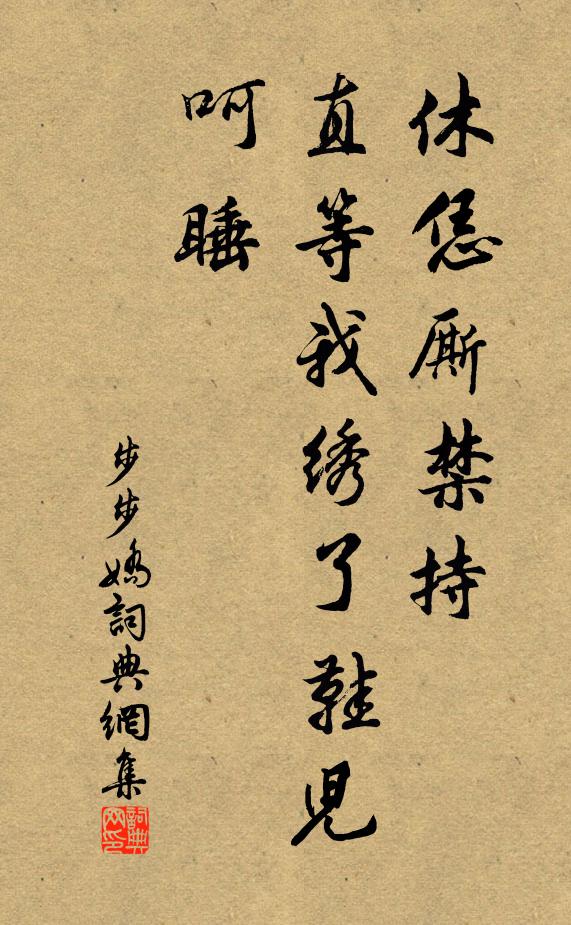 休恁厮禁持
直等我绣了鞋児
呵睡
步步嬌詞典網集
詞典网印